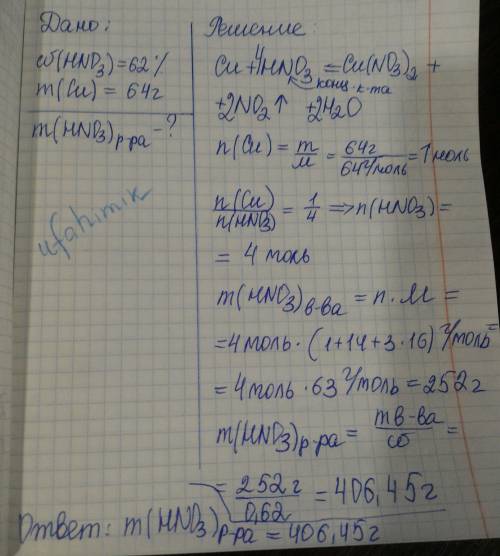 Дано:
ω(HNO3)=62%
m(Cu) = 64г
m(HNO3)р-ра -?
ufahimik
Решение:
Cu + 4HNO3 = Cu(NO3)2 +
конц. к-та
+2NO2↑ +2H2O
n(Cu) = m/M = 64г/64г/моль = 1 моль
n(Cu)/n(HNO3) = 1/4 ⟹ n(HNO3) =
= 4 моль
m(HNO3)в-ва = n·M =
=4 моль · (1+14+3·16) г/моль =
= 4 моль · 63 г/моль = 252 г
m(HNO3)р-ра = mв-ва/ω =
= 252 г/0,62 = 406,45г
Ответ: m(HNO3)р-ра = 406,45г